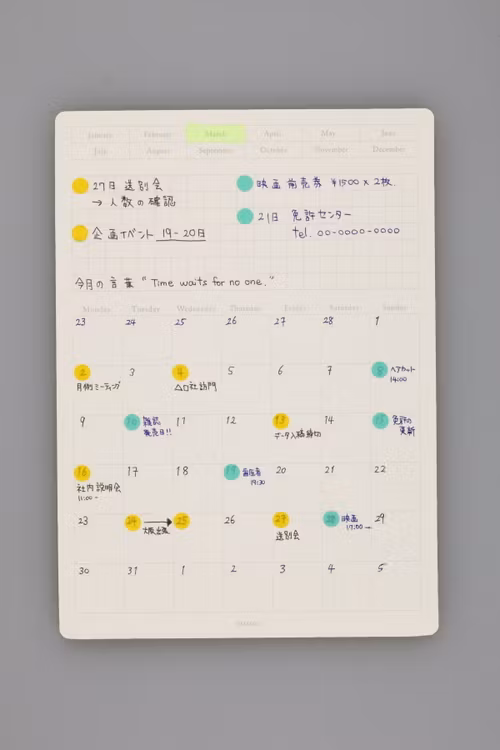 January February March April May June
July August September October November December
27日 送別会
→ 人数の確認
企画イベント 19-20日
映画 前売券 ¥1500 x 2枚.
21日 免許センター
tel. 00-0000-0000
今月の言葉 " Time waits for no one. "
Monday Tuesday Wednesday Thursday Friday Saturday Sunday
23 24 25 26 27 28 1
2 3 4 5 6 7 8 ヘアカット
月例ミーティング △□社訪問 14:00
9 10 雑誌 11 12 13 14 15 免許の
発売日!! データ入稿締切 更新
16 17 18 19 歯医者 20 21 22
社内説明会 19:30
11:00~
23 24 → 25 26 27 28 映画 29
大阪 送別会 17:00~
30 31 1 2 3 4 5